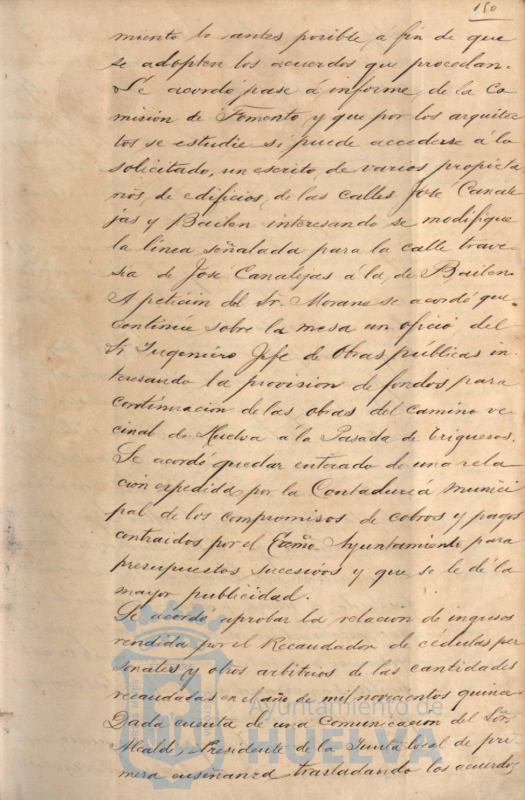 150
miento lo antes posible, á fin de que
se adopten los acuerdos que procedan.
Se acordó pase á informe, de la Co
misión de Fomento, y que por los arquitec
tos se estudie si puede accederse á lo
solicitado, un escrito, de varios propieta
rios, de edificios, de las calles José Canale
jas y Bailen interesando se modifique
la línea señalada para la calle trave-
sia de José Canalejas á la, de Bailen.
A petición del Sr. Morano se acordó que
continúe sobre la mesa un oficio del
Sr Ingeniero Jefe de Obras públicas in-
teresando la provision de fondos para
continuacion de las obras del camino ve
cinal de Huelva á la Pasada de Trigueros.
Se acordó quedar enterado de una rela
ción expedida por la Contaduría munici
pal de los compromisos de cobros y pagos
contraidos por el Excmo Ayuntamiento para
presupuestos sucesivos y que se le dé la
mayor publicidad.
Se acordó aprobar la relacion de ingresos
rendida por el Recaudador de cédulas per
sonales y otros arbitrios de las cantidades
recaudadas en el año de mil novecientos quince
Dada cuenta de una Comunicacion del Señor
Alcalde, Presidente de la Junta local de pri
mera enseñanza trasladando los acuerdos
Ayuntamiento de
HUELVA